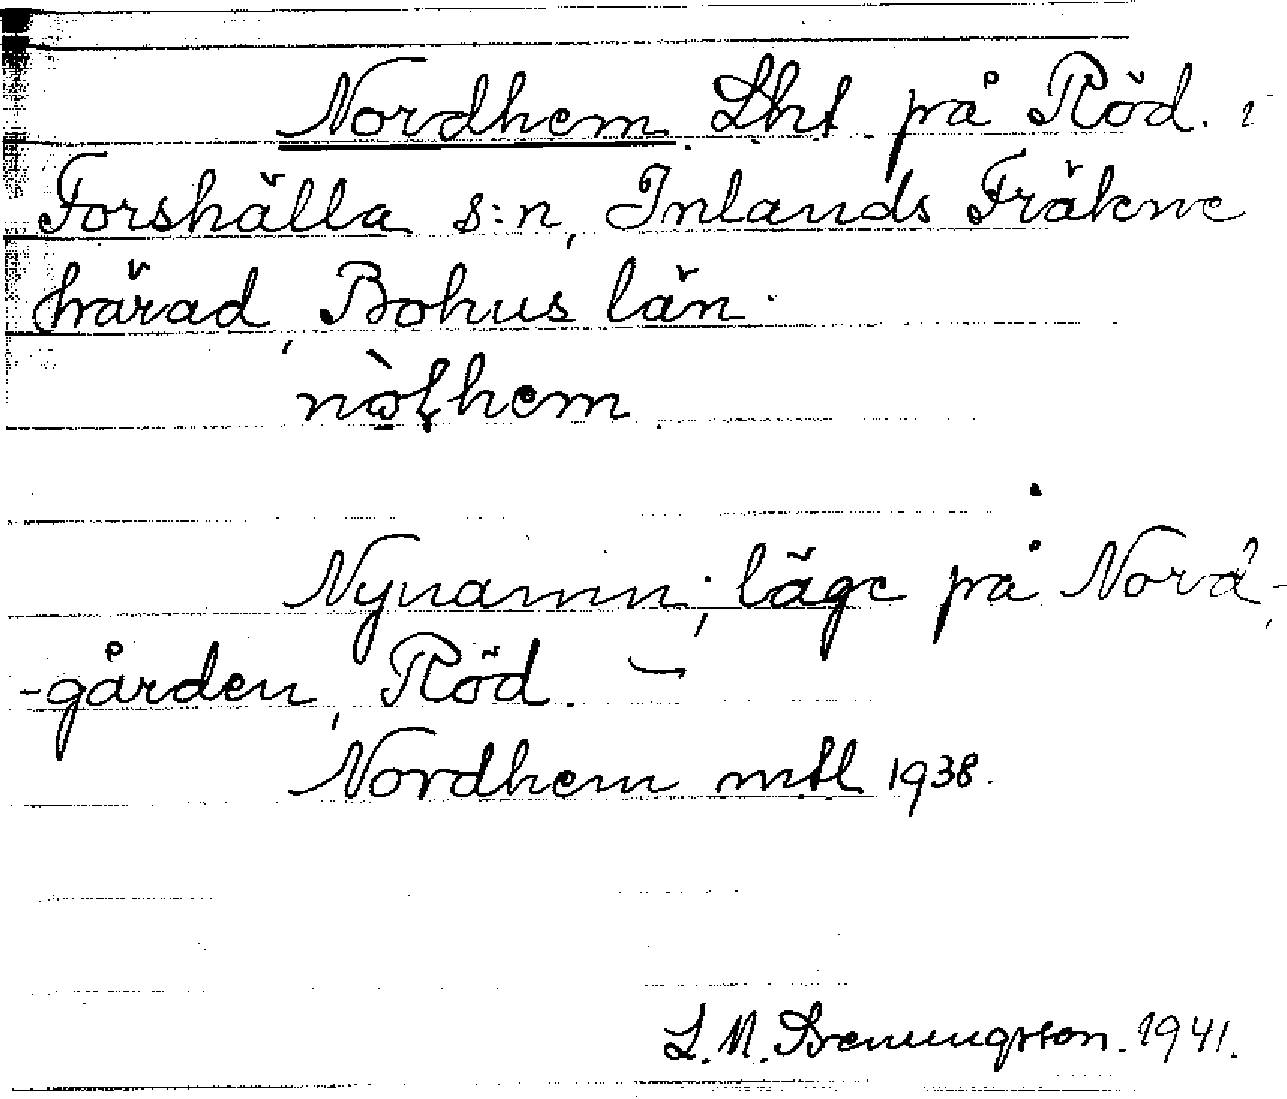 Nordhem Lht på Röd. i
Forshälla s:n, Inlands Fräkne
härad, Bohus län.
nòlhem
Nynamn; läge på Nord-
-gården, Röd. –
Nordhem mtl 1938.
L. N. Svenungsson. 1941.